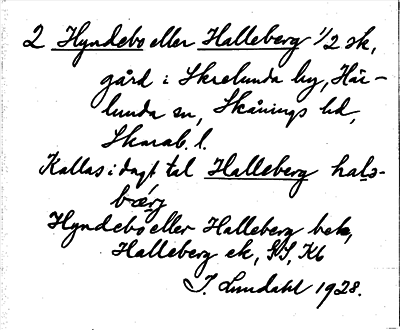 2 Hyndebo eller Halleberg 1/2 sk,
gård i Skrelunda by, Här-
lunda sn, Skånings hd,
Skarab. l.
Kallas i dagl tal Halleberg hals-
bærg
Hyndebo eller Halleberg bek,
Halleberg ek, KS, Kb
J. Lundahl 1928.